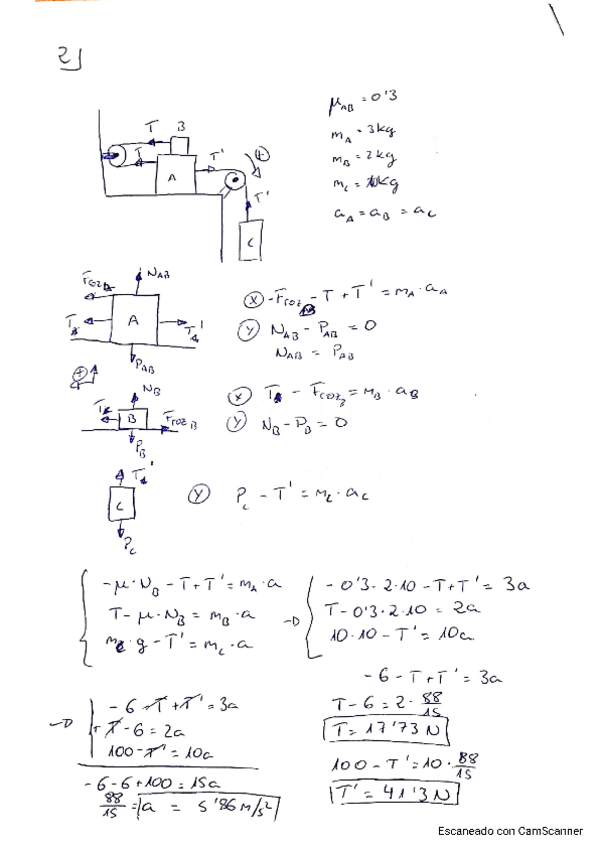 2)
μAB = 0'3
mA = 3kg
mB = 2kg
mC = 10kg
aA = aB = aC
T B
T T' +
A
T'
C
FrozA NAB
T A T'
PAB
Ⓧ -Froz AB - T + T' = mA · aA
Ⓨ NAB - PAB = 0
NAB = PAB
+
NB
T B FrozB
PB
Ⓧ T - FrozB = mB · aB
Ⓨ NB - PB = 0
T'
C
PC
Ⓨ PC - T' = mC · aC
-μ · NB - T + T' = mA · a
T - μ · NB = mB · a
mC · g - T' = mC · a
- 0'3 · 2 · 10 - T + T' = 3a
T - 0'3 · 2 · 10 = 2a
10 · 10 - T' = 10a
-6 - T + T' = 3a
-6 - T + T' = 3a
+ T - 6 = 2a
100 - T' = 10a
-6 - 6 + 100 = 15a
88/15 = a = 5'86 m/s²
T - 6 = 2 · 88/15
T = 17'73 N
100 - T' = 10 · 88/15
T' = 41'3 N
Escaneado con CamScanner